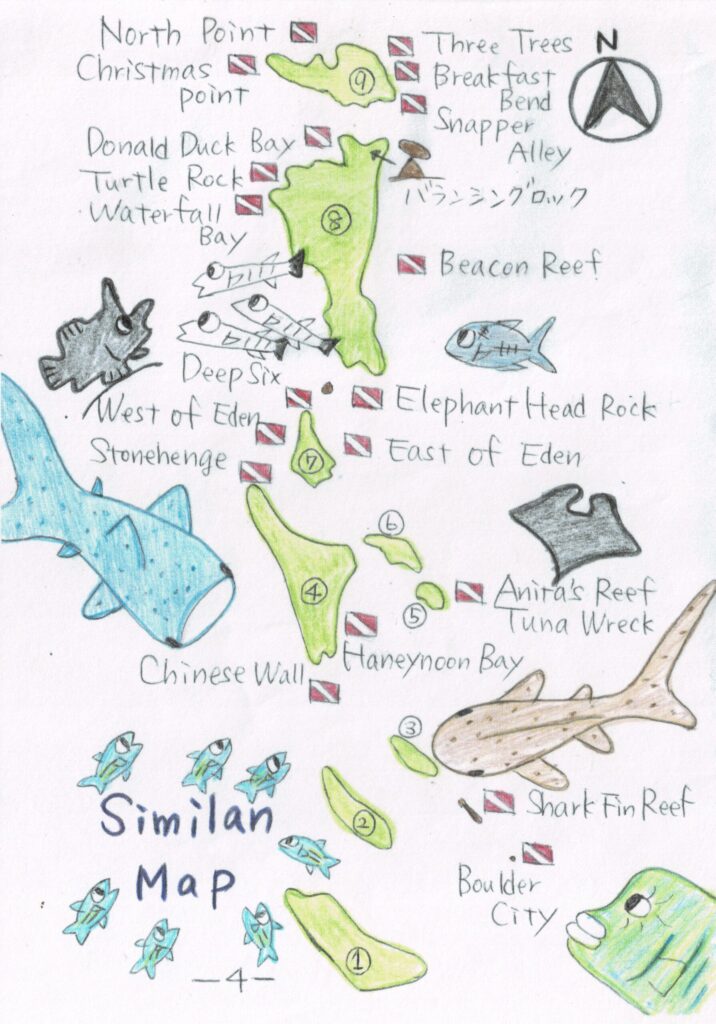 North Point
Christmas
Point
Three Trees
Breakfast
Bend
Snapper
Alley
N
⑨
Donald Duck Bay
Turtle Rock
Waterfall
Bay
⑧
バランシングロック
Beacon Reef
Deep Six
West of Eden
Stonehenge
Elephant Head Rock
East of Eden
⑦
⑥
④
⑤
Anita's Reef
Tuna Wreck
Haneynoon Bay
Chinese Wall
③
②
Shark Fin Reef
Similan
Map
Boulder
City
①
-4-